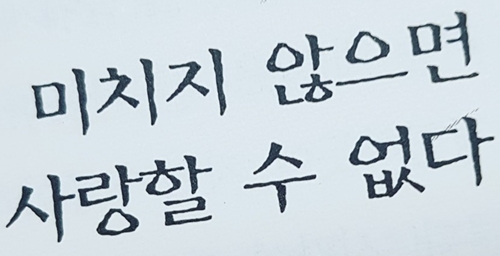 미치지 않으면
사랑할 수 없다